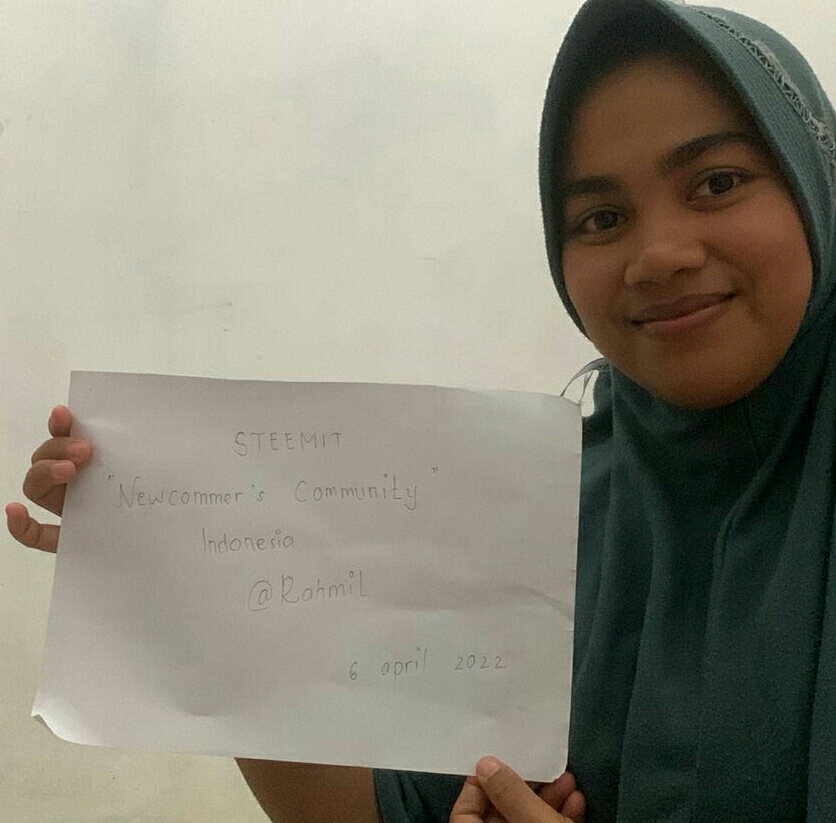 STEEMIT
"Newcommer's Community"
Indonesia
@Rahmil
6 april 2022